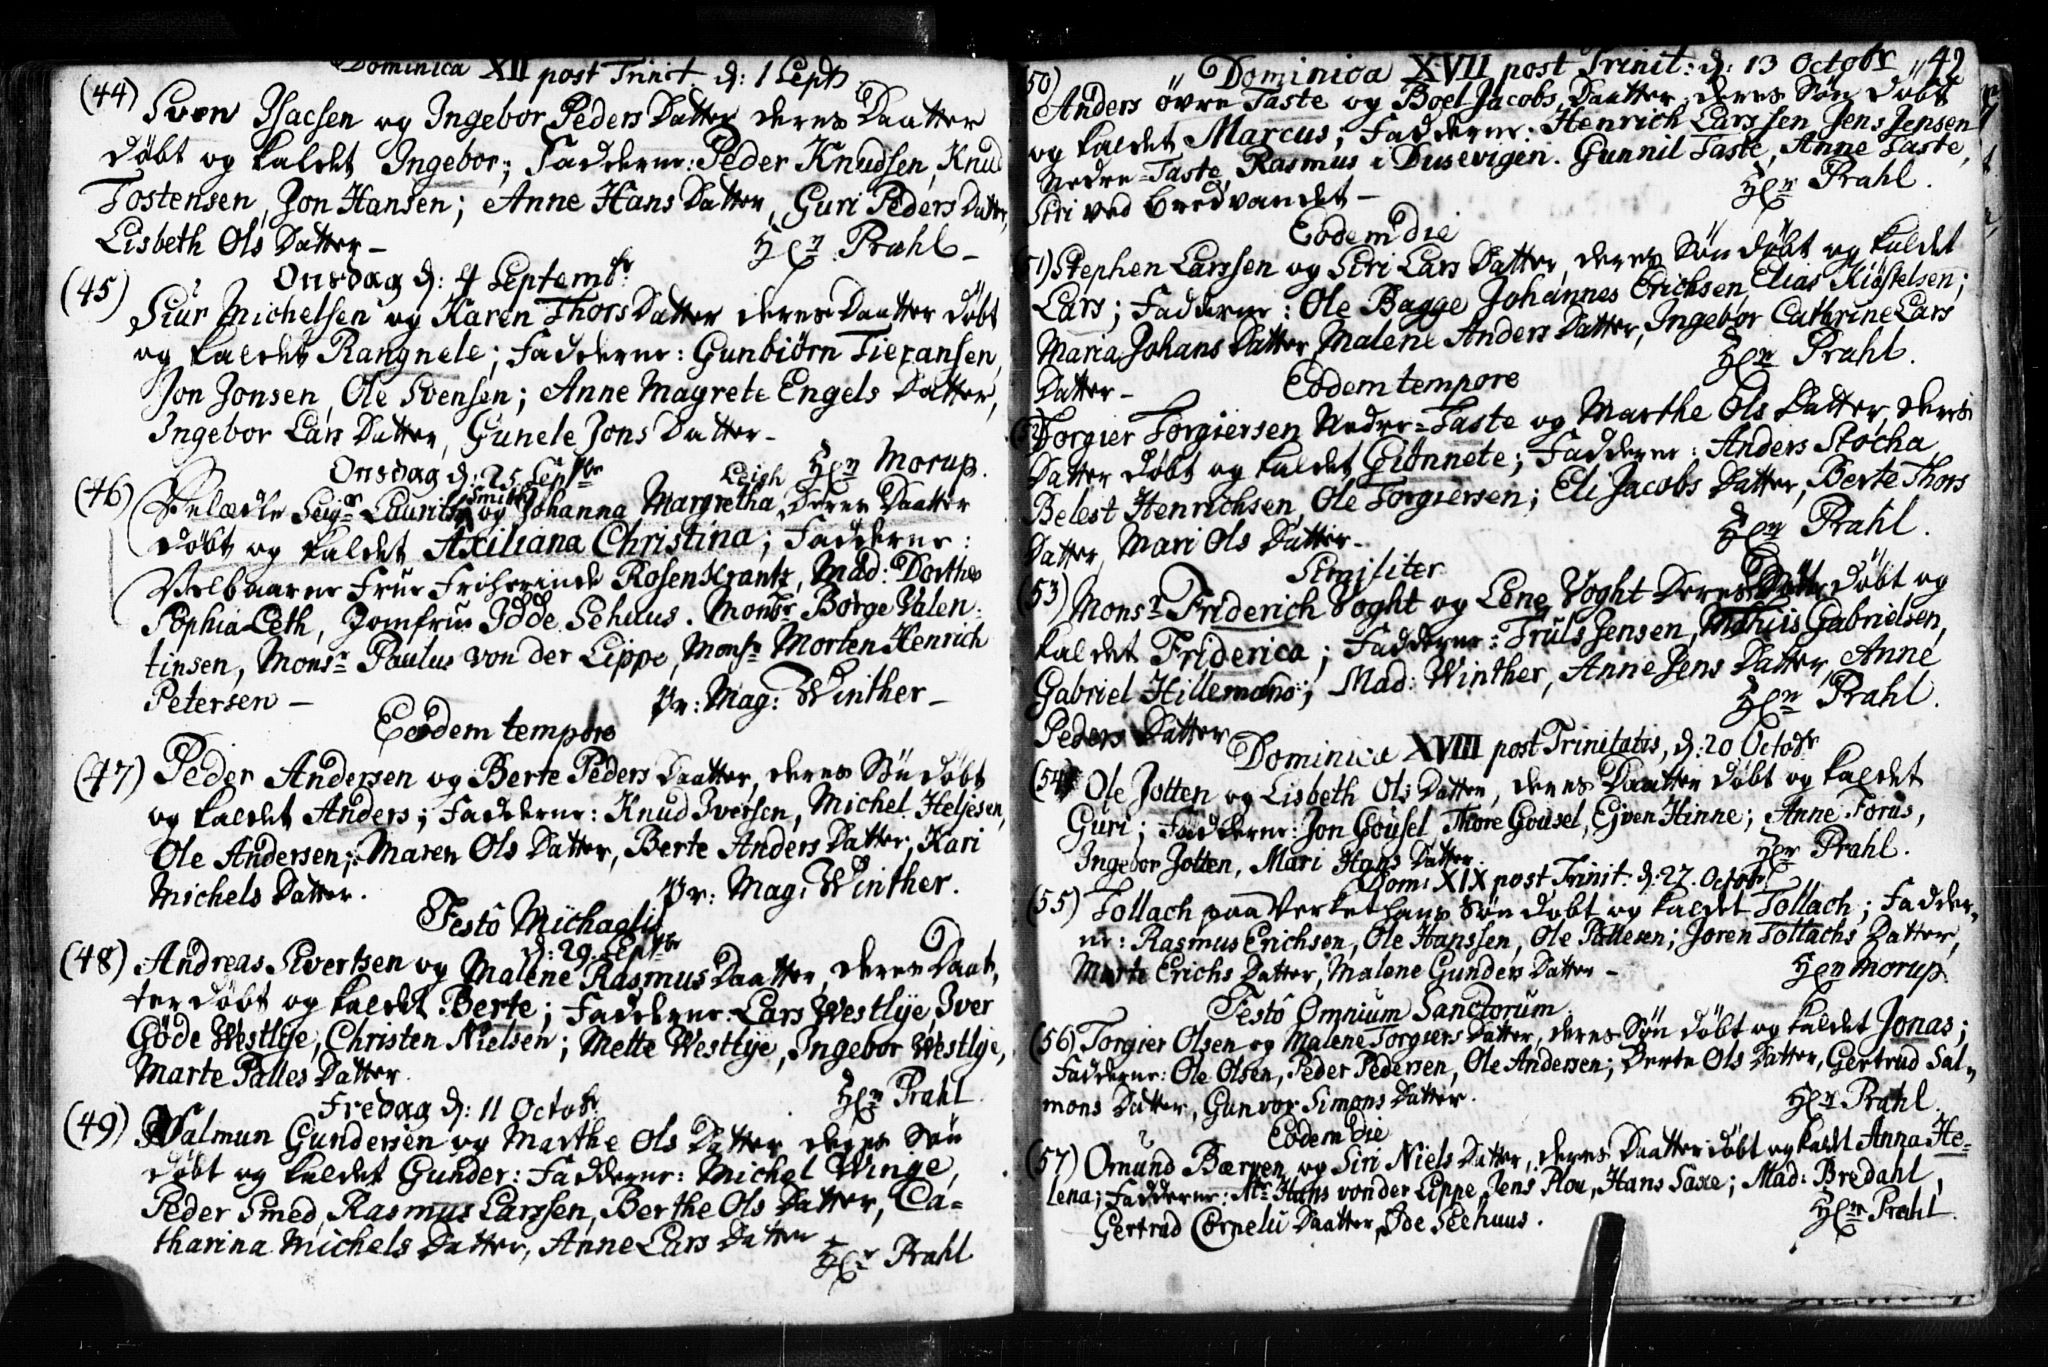 Dominica XII post Trinit. d: 1 Sept
(44) Sven Isacsen og Ingebor Peders Datter deres Daatter
döbt og kaldet Ingebor; Fadderne: Peder Knudsen, Knud
Tostensen, Jon Hansen; Anne Hans Datter, Guri Peders Datter,
Lisbeth Ols Datter – Hr Prahl –
Onsdag d: 4 Septembr
(45) Siur Michelsen og Karen Thors Datter deres Daatter döbt
og kaldet Rangnele; Fadderne: Gunbiörn
Jon Jonsen, Ole Svensen; Anne Magrete Engels Datter,
Ingebor Lars Datter, Gunele Jons Datter – Hr Morup.
Onsdag d: 25 Septbr
(46) Seigr Laurits Smith og Johanna Margretha Leigh, deres Daatter
döbt og kaldet Axiliana Christina; Fadderne:
Velbaarne Frue Friherinde Rosenkrantz, Mad: Dorthe
Sophia Leth, Jomfru Idde Sehuus. Monsr Börge Valen-
tinsen, Monsr Paulus von der Lippe, Monsr Morten Henrich
Petersen – Pr: Mag: Winther –
Eodem tempore
(47) Peder Andersen og Berte Peders Daatter, deres Sön döbt
og kaldet Anders; Fadderne: Knud Iversen, Michel Heljesen,
Ole Andersen; Maren Ols Datter, Berte Anders Datter, Kari
Michels Datter. Pr: Mag: Winther.
Festô Michaelis
d: 29. Septbr
(48) Andreas Sivertsen og Malene Rasmus Daatter, deres Daat-
ter döbt og kaldet Berte; Fadderne: Lars Westlÿe, Iver
Göde Westlÿe, Christen Nielsen; Mette Westlÿe, Ingebor Westlÿe,
Marte Palles Datter. Hr Prahl
Fredag d: 11 Octobr
(49) Valmun Gundersen og Marthe Ols Datter deres Sön
döbt og kaldet Gunder: Fadderne: Michel Winge,
Peder Smed, Rasmus Larssen, Berthe Ols Datter, Ca-
tharina Michels Datter, Anne Lars Datter – Hr Prahl
Dominica XVII post Trinit: d: 13 Octobr 42
50) Anders övre Taste og Boel Jacobs Daatter, deres Sön döbt
og kaldet Marcus; Fadderne: Henrich Larssen, Jens Jensen
Nedre-Taste, Rasmus i Dusevigen. Gunnil Taste, Anne Taste,
Siri ved Bredvandet – Hr Prahl.
Eodem die
51) Stephen Larssen og Siri Lars Datter, deres Sön döbt og kaldet
Lars; Fadderne: Ole Bagge Johannes Erichsen Elias Kiöstelsen;
Maria Johans Datter, Malene Anders Datter, Ingebor Cathrine Lars
Datter – Hr Prahl.
Eodem tempore
52) Torgier Torgiersen Neder-Taste og Marthe Ols Datter, deres
Datter döbt og kaldet Giönnete; Fadderne: Anders Stocha
Belest Henrichsen, Ole Torgiersen; Eli Jacobs Datter, Berte Thors
Datter, Mari Ols Datter – Hr Prahl.
Similiter
(53) Monsr Friderich Voght og Lene Voght deres Datter döbt og
kaldet Friderica; Fadderne: Truls Jensen, Gabrielsen,
Gabriel Hillemans; Mad: Winther, Anne Jens Datter, Anne
Peders Datter Hr Prahl.
Dominica XVIII post Trinitatis, d: 20 Octobr
(54) Ole Jotten og Lisbeth Ols Datter, deres Daatter döbt og kaldet
Guri; Fadderne: Jon Gousel, Thore Gousel, Ejven Hinne; Anne Forus,
Ingebor Jotten, Mari Hans Datter. Hr Prahl.
Dom: XIX post Trinit: d: 27. Octobr
(55) Tollach paa Verket hans Sön döbt og kaldet Tollach; Fadder-
ne: Rasmus Erichsen, Ole Hanssen, Ole Pallesen; Joren Tollachs Datter,
Marte Erichs Datter, Malene Gunders Datter – Hr Morup.
Festô Omnium Sanctorum
(56) Torgier Olsen og Malene Torgiers Datter, deres Sön döbt og kaldet Jonas;
Fadderne: Ole Olsen, Peder Pedersen, Ole Andersen; Berte Ols Datter, Gertrud Sal-
mons Datter, Gunvor Simons Datter. Hr Prahl
Eodem die
(57) Omund og Siri Niels Datter, deres Daatter döbt og kaldt Anna He-
lena; Fadderne: Mr Hans von der Lippe, Jens Plou, Hans Saxe; Mad: Bredahl,
Gertrud Corneli Daatter, Ide Seehuus. Hr Prahl.